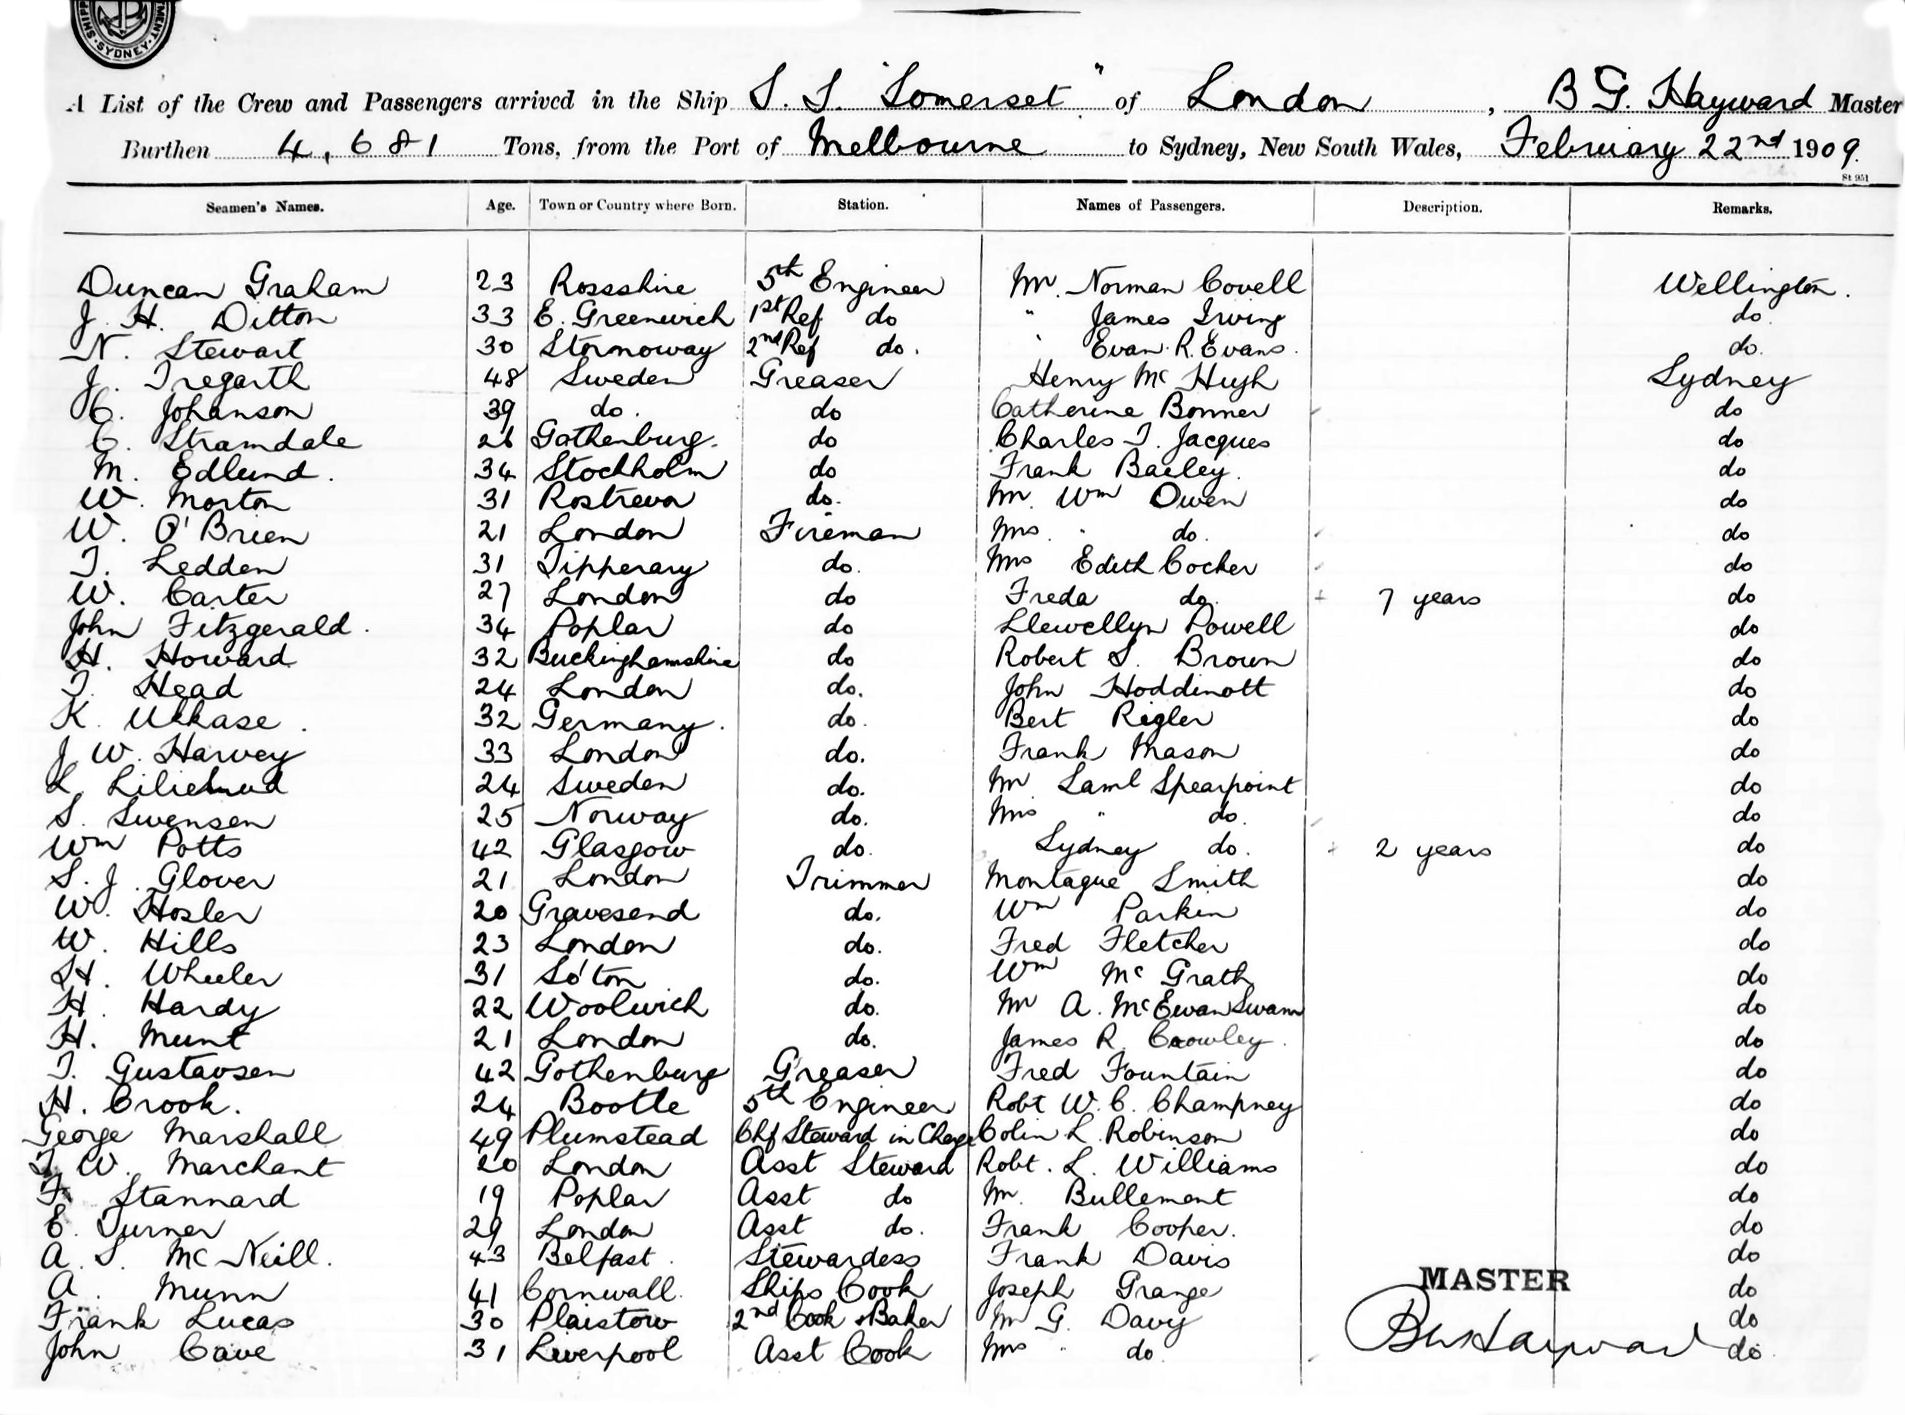 SYDNEY
A List of the Crew and Passengers arrived in the Ship S. S. "Somerset" of London, B G. Hayward Master
Burthen 4,681 Tons, from the Port of Melbourne to Sydney, New South Wales, February 22nd 1909.
St 951
Seamen's Names. Age. Town or Country where Born. Station. Names of Passengers. Description. Remarks.
Duncan Graham 23 Rossshire 5th Engineer Mr. Norman Covell Wellington.
J. H. Ditton 33 E. Greenwich 1st Ref do " James Irving do.
N. Stewart 30 Stornoway 2nd Ref do. " Evan R. Evans. do.
J. Tregarth 48 Sweden Greaser Henry Mc Hugh Sydney
C. Johanson 39 do. do Catherine Bonner do
C. Stramdale 26 Gothenburg. do Charles T. Jacques do
M. Edlund. 34 Stockholm do Frank Bailey. do
W. Morton 31 Rostrevor do. Mr Wm Owen do
W. O'Brien 21 London Fireman Mrs. " do. do
T. Ledden 31 Tipperary do. Mrs Edith Cocker do
W. Carter 27 London do Freda do. 7 years do
John Fitzgerald. 34 Poplar do Llewellyn Powell do
H. Howard 32 Buckinghamshire do Robert S. Brown do
T. Head 24 London do. John Hoddinott do
K. Ukkase. 32 Germany. do. Bert Rigler do
J W. Harvey 33 London do. Frank Mason do
L. 24 Sweden do. Mr Saml Spearpoint do
S. Swensen 25 Norway do. Mrs " do. do
Wm Potts 42 Glasgow do. Sydney do. 2 years do
S. J. Glover 21 London Trimmer Montague Smith do
W. Hosler 20 Gravesend do. Wm Parkin do
W. Hills 23 London do. Fred Fletcher do
H. Wheeler 31 So'ton do. Wm Mc Grath do
H. Hardy 22 Woolwich do. Mr A. McEwan Swann do
H. Munt 21 London do. James R. Crowley. do
T. Gustavsen 42 Gothenburg Greaser Fred Fountain do
H. Crook. 24 Bootle 5th Engineer Robt W. C. Champney do
George Marshall 49 Plumstead Chf Steward in Charge Colin L. Robinson do
W. Marchant 20 London Asst Steward Robt. L. Williams do
F. Stannard 19 Poplar Asst do Mr. Bullement do
E. Turner 29 London Asst do. Frank Cooper. do
A. S. McNeill. 43 Belfast. Stewardess Frank Davis do
A. Munn 41 Cornwall. Ships Cook Joseph Grange MASTER do
Frank Lucas 30 Plaistow 2nd Cook & Baker Mr G. Davy do
John Cave 31 Liverpool Asst Cook Mrs " do. Hayward do.